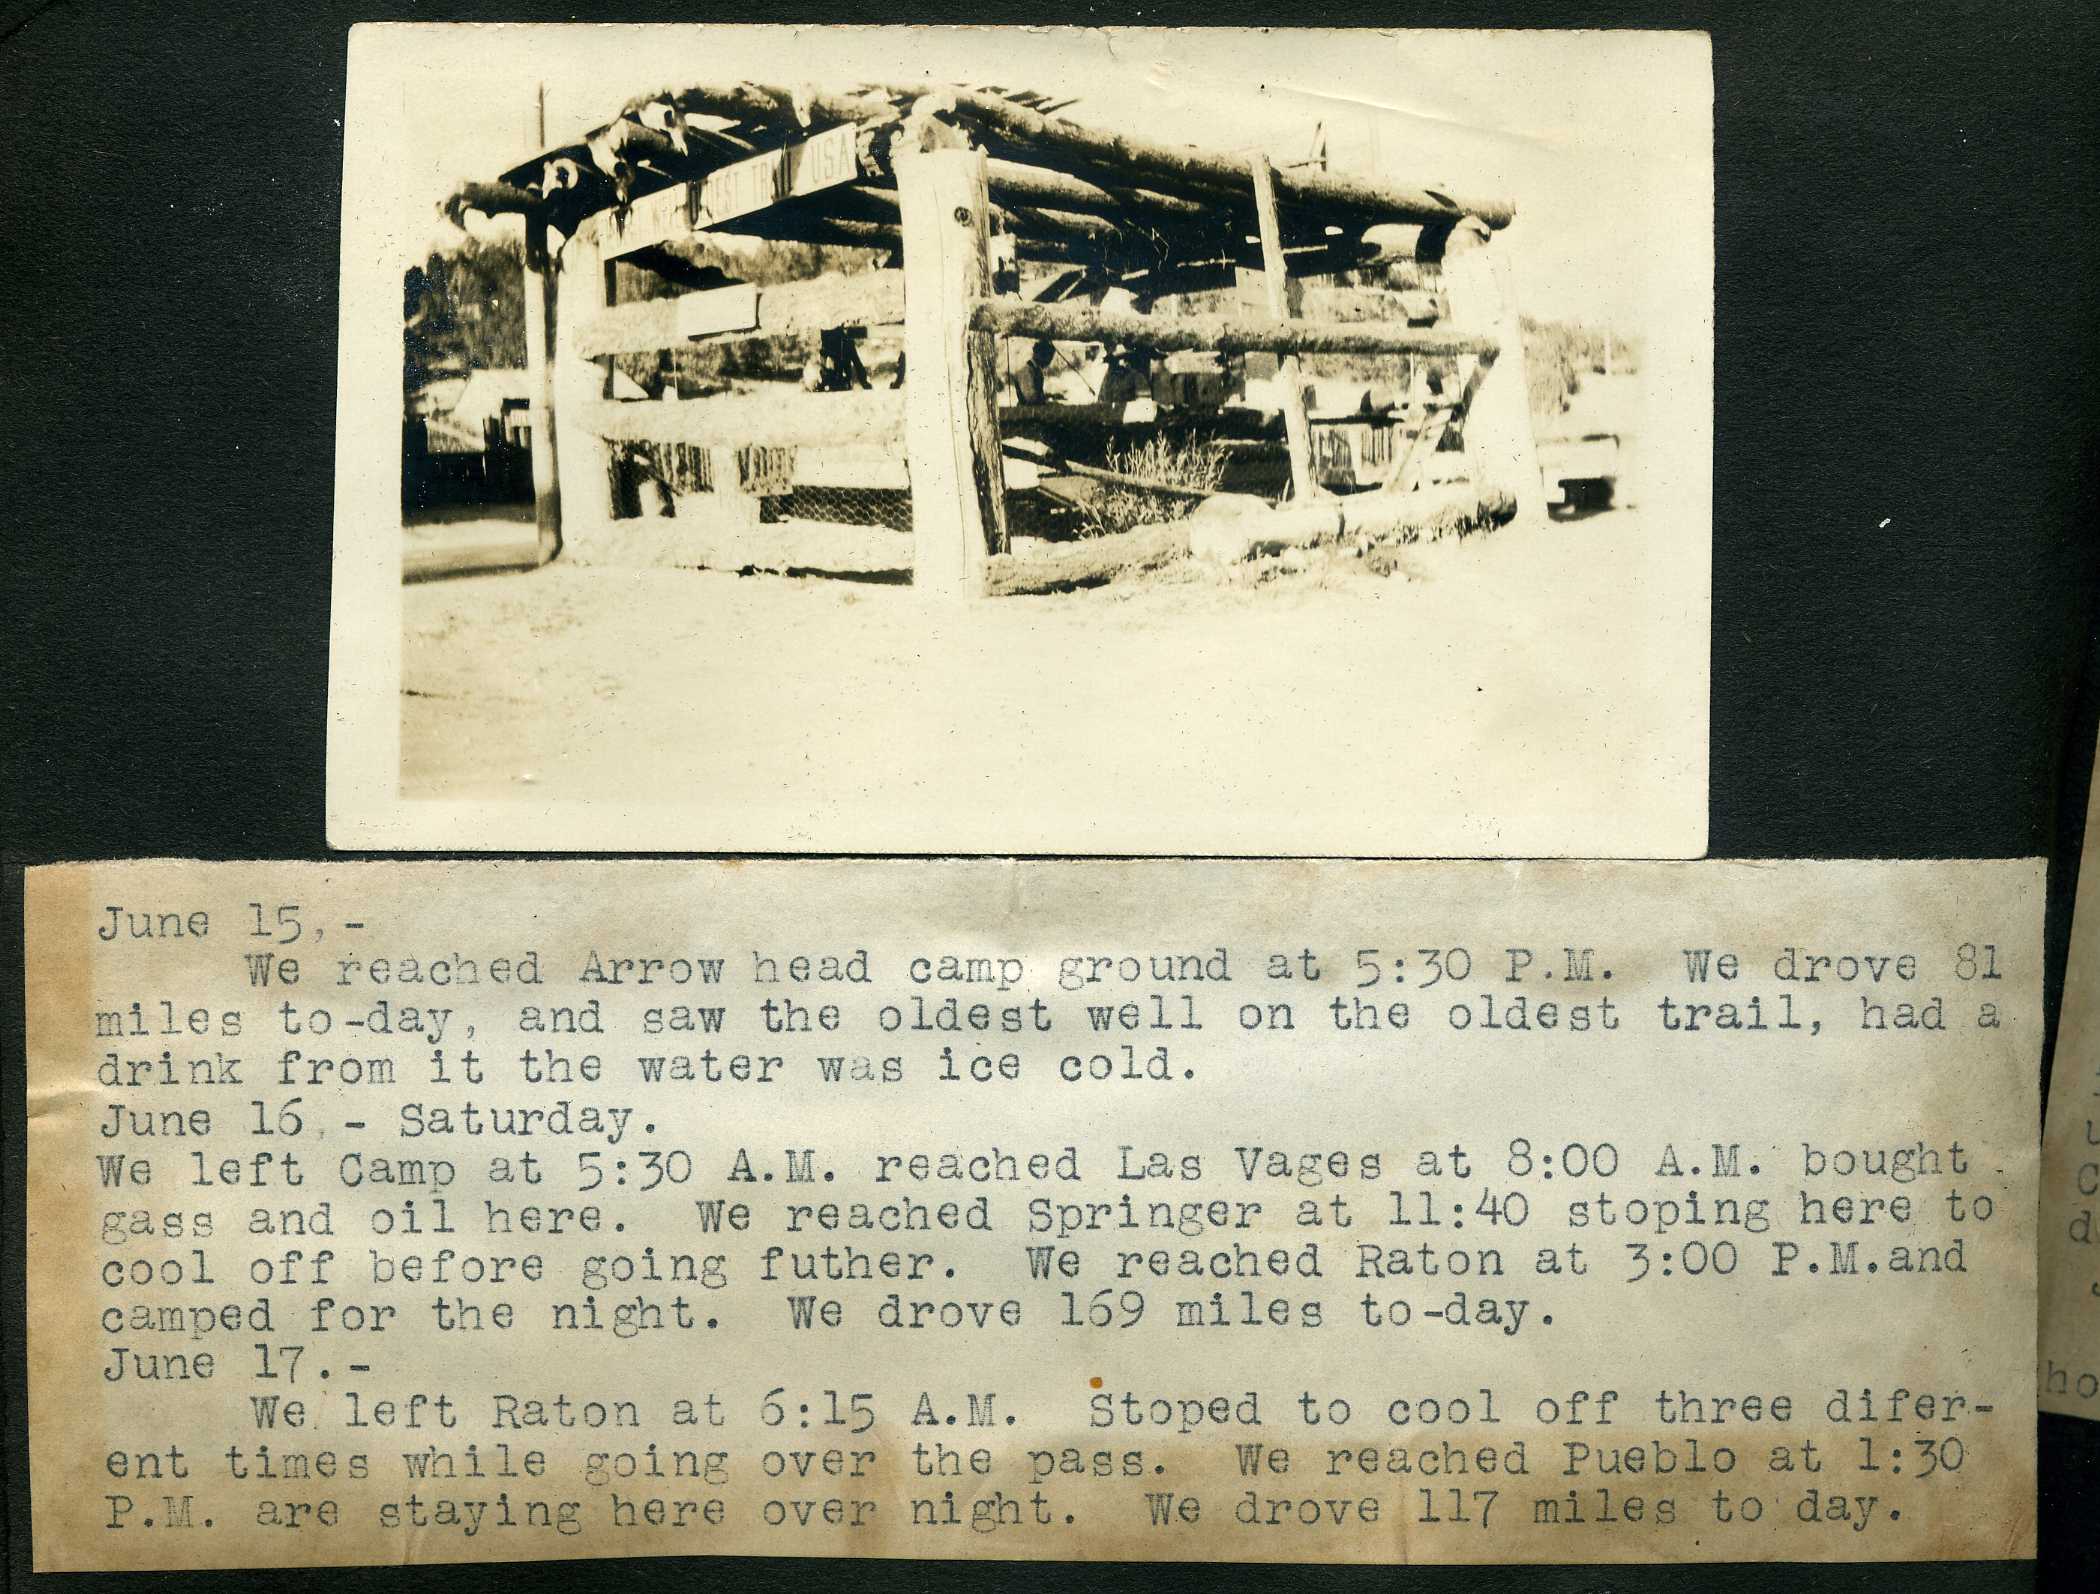 TRAIL USA
June 15,-
We reached Arrow head camp ground at 5:30 P.M. We drove 81
miles to-day, and saw the oldest well on the oldest trail, had a
drink from it the water was ice cold.
June 16,- Saturday.
We left Camp at 5:30 A.M. reached Las Vages at 8:00 A.M. bought
gass and oil here. We reached Springer at 11:40 stoping here to
cool off before going futher. We reached Raton at 3:00 P.M.and
camped for the night. We drove 169 miles to-day.
June 17.-
We left Raton at 6:15 A.M. Stoped to cool off three difer-
ent times while going over the pass. We reached Pueblo at 1:30
P.M. are staying here over night. We drove 117 miles to day.
ho